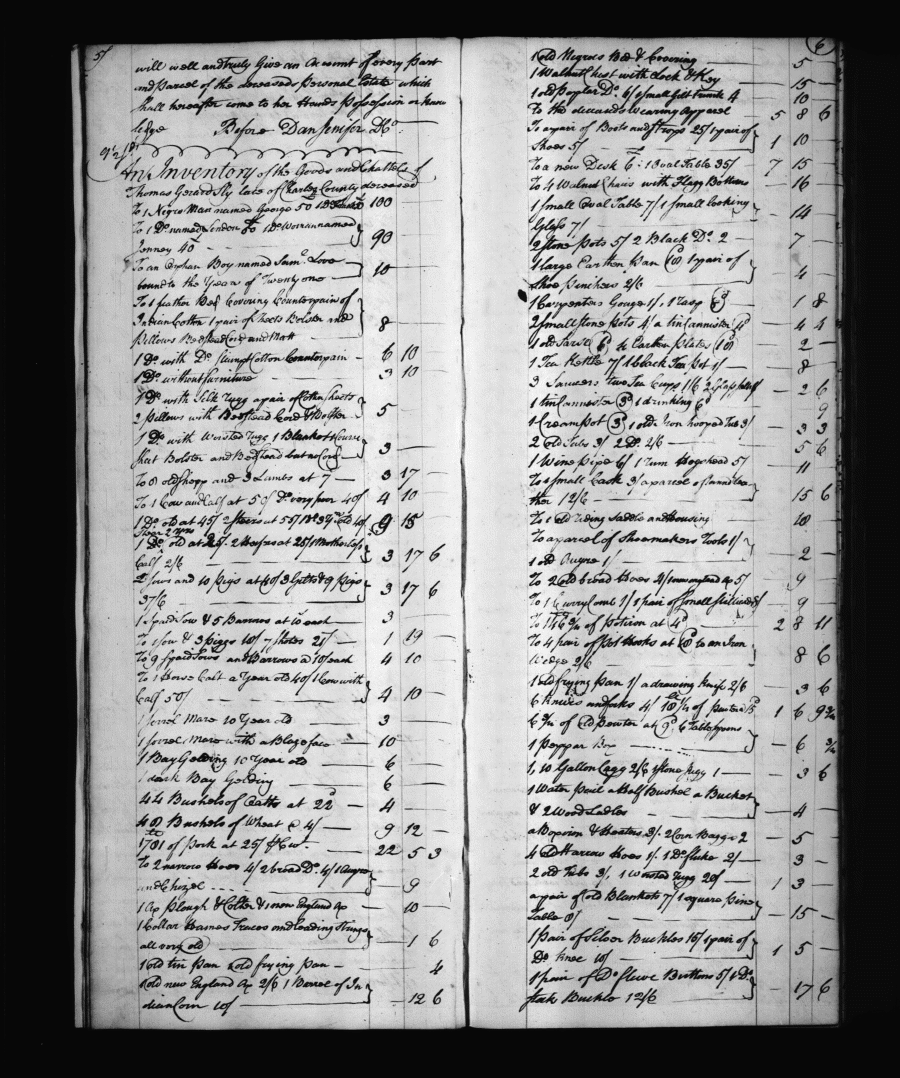 5/
will well and truly Give an Account of every Part
and Parcel of the deceased Personal Estate which
shall hereafter come to her Hands Possession or Know
ledge Before Dan Jenifer
An Inventory of the Goods and Chattels of
Thomas Gerard Sly late of Charles County deceased
To 1 Negro Man named George 50 100
To 1 Do. named London 50 1 Do. Woman named
Jenney 40 90
To an Orphan Boy named Saml. Love
bound to the Year of Twenty one 10
To 1 feather Bed Covering Counterpain of
Indian Cotton 1 pair of Sheets Bolster and
Pillows Bedstead Cord and Matt 8
1 Do. with Do. Stampt Cotton Counterpain 6 10
1 Do. without furniture 3 10
1 Do. with Silk Rugg a pair of Cotton Sheets
2 pillows with Bedstead Cord & Bolster 5
1 Do. with Worsted Rugg 1 Blanket 1 Course
Sheet Bolster and Bedstead but no Cord 3
To 8 old Shepp and 3 Lambs at 7 3 17
To 1 Cow and Calf at 50/ Do. very poor 40/ 4 10
1 Do. old at 45/ 2 Steers at 55/ 9 15
1 Do. old at 25/. 2 Heifers at 25/ 1 Mother Less
Calf 2/6 3 17 6
2 Sows and 10 Pigs at 40/ 3 Gilts & 9 Pigs
37/6 3 17 6
1 Spaid Sow & 5 Barrows at 10 each 3
To 1 Sow & 3 Piggs 18/ 7 Shotes 21/ 1 19
To 9 Spaid Sows and Barrows a 10/ each 4 10
To 1 Horse Calt a Year old 40/ 1 Cow with
Calf 50/ 4 10
1 Sorrel Mare 10 Year old 3
1 Sorrel Mare with a Blaze face 10
1 Bay Gelding 10 Year old 6
1 dark Bay Gelding 6
44 Bushels of Oatts at 22d 4
48 Bushels of Wheat @ 4/ 9 12
1781 of Pork at 25/ 22 5 3
To 2 narrow Hoes 4/ 2 broad Do. 4/ 1 Augre
and Chizel 9
1 Ax Plough & Colter & 1 new England Ax 10
1 Collar Harnes Traces and leading
all very old 1 6
1 old tin Pan 1 old frying Pan 4
1 old new England Ax 2/6 1 Barrel of In
dian Corn 10/ 12 6
6
1 old Negroes Bed & Covering 5
1 Walnut Chest with Lock & Key 15
1 old Poplar Do. 6/ 1 Small Gilt Trunk 4 10
To the deceaseds Wearing apparel 5 8 6
To a pair of Boots and Straps 25/ 1 pair of
Shoes 5/ 1 10
To a new Desk 6 1 Oval Table 35/ 7 15
To 4 Walnut Chairs with Flagg Bottoms 16
1 Small Oval Table 7/ 1 Small looking
Glass 7/ 14
2 Stone Pots 5/ 2 Black Do. 2 7
1 large Earthen Pan 1 pair of
Shoe Pinchers 2/6 4
1 Carpenters Gouge 1/, 1 Rasp 8d 1 8
2 Small Stone Pots 4/ a tin Cannister 4d 4 4
4 Earthen Plates 2
1 Tea Kettle 7/ 1 black Tea Pot 1/ 8
3 Sawcers two Tea Cupps 1/6 2 Glass 2 6
1 tin Cannister 3d 1 drinking 6d 9
1 Cream Pot 3d 1 old Iron hooped Tub 3/ 3 3
2 old Tubs 3/ 2 Do. 2/6 5 6
1 Wine Pipe 6/ 1 Rum Hogshead 5/ 11
To 1 Small Cask 3/ a parcel of Lea
ther 12/6 15 6
To 1 old Riding Saddle and Housing 10
To a parcel of Shoemakers Tools 1/
1 old 1/ 2
To 2 old broad Hoes 4/ 1 new England Ax 5/ 9
To 1 Curry Comb 1/ 1 pair of Small Stilliards 8/ 9
of Potiron at 4d 2 8 11
To 4 pair of Pot Hooks at to an Iron
Wedge 2/6 8 6
1 old frying Pan 1/ a drawing Knife 2/6 3 6
6 Knives and forks 4/ 18 1/4 of Pewter 1 6 9 3/4
6 3/4 of old Pewter at 9d. 6 Table spoons
1 Pepper Box 6 3/4
1, 10 Gallon Cagg 2/6 1 Stone Jugg 1 3 6
1 Water Pail a Half Bushel a Bucket
& 2 Wood Ladles 4
a Box iron & Heaters 3/. 2 Corn Baggs 2 5
4 old Harrow Hoes 1/. 1 Do. fluke 2/ 3
2 old Tubs 3/. 1 Worsted Rugg 20/ 1 3
a pair of old Blankets 7/ 1 square Pine
Table 8/ 15
1 Pair of Silver Buckles 15/ 1 pair of
Do. Knee 10/ 1 5
1 pair of Do. Sleeve Buttons 5/ 1 Do.
Stock Buckle 12/6 17 6